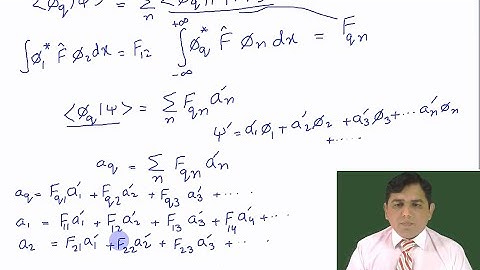 ⟨φq|Ψ⟩ = Σn
∫φ1* F̂ φ2 dx = F12 ∫-∞+∞ φq* F̂ φn dx = Fqn
⟨φq|Ψ⟩ = Σn Fqn a'n
Ψ' = a'1φ1 + a'2φ2 + a'3φ3 + ... a'nφn
+ .....
aq = Σn Fqn a'n
aq = Fq1 a'1 + Fq2 a'2 + Fq3 a'3 + ....
a1 = F11 a'1 + F12 a'2 + F13 a'3 + F14 a'4 + ...
a2 = F21 a'1 + F22 a'2 + F23 a'3 + ....